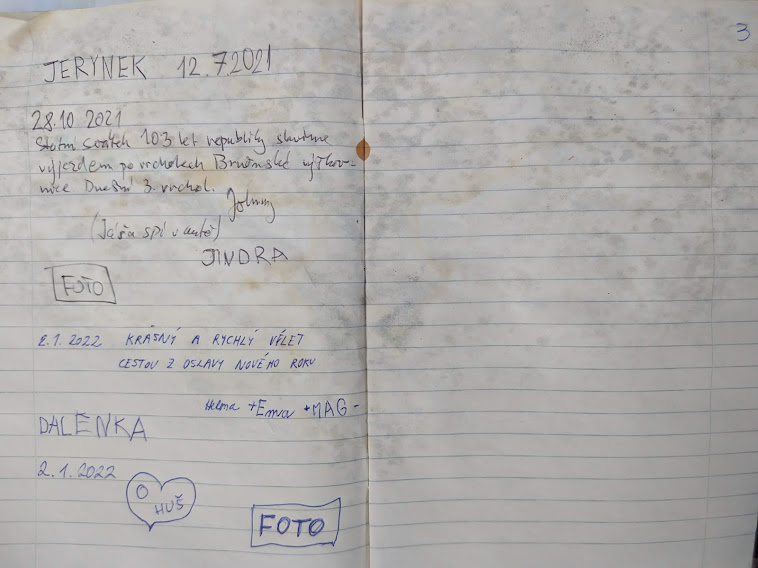 3
JERYNEK 12.7.2021
28.10 2021
Státní svátek 103 let republiky slavíme
výjezdem po vrcholech Brněnské
Dnešní 3. vrchol.
Johny
(Jáša spí v autě)
JINDRA
FOTO
2.1.2022 KRÁSNÝ A RYCHLÝ VÝLET
CESTOU Z OSLAVY NOVÉHO ROKU
Helma + Ema + MAG -
DALENKA
2.1.2022
O
HUŠ
FOTO